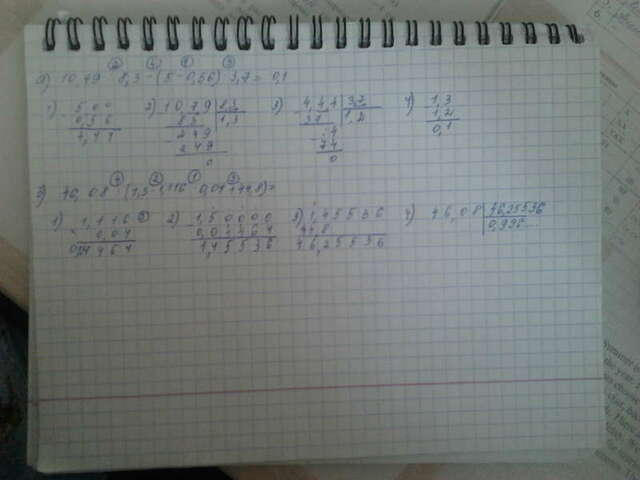 10,79 8,3 - (5 - 0,56) 3,7 = 0,1
1) 5,00 2) 10,79 8,3 3) 4,44 3,7 4) 1,3
0,56 83 1,3 37 1,2 1,2
4,44 249 74 0,1
249 74
0 0
46,08 (1,5 - 1,116 0,04 + 44,8) =
1) 1,116 2) 1,50000 3) 1,45536 4) 46,08 46,25536
0,04 0,04464 44,8 0,996...
0,04464 1,45536 46,25536